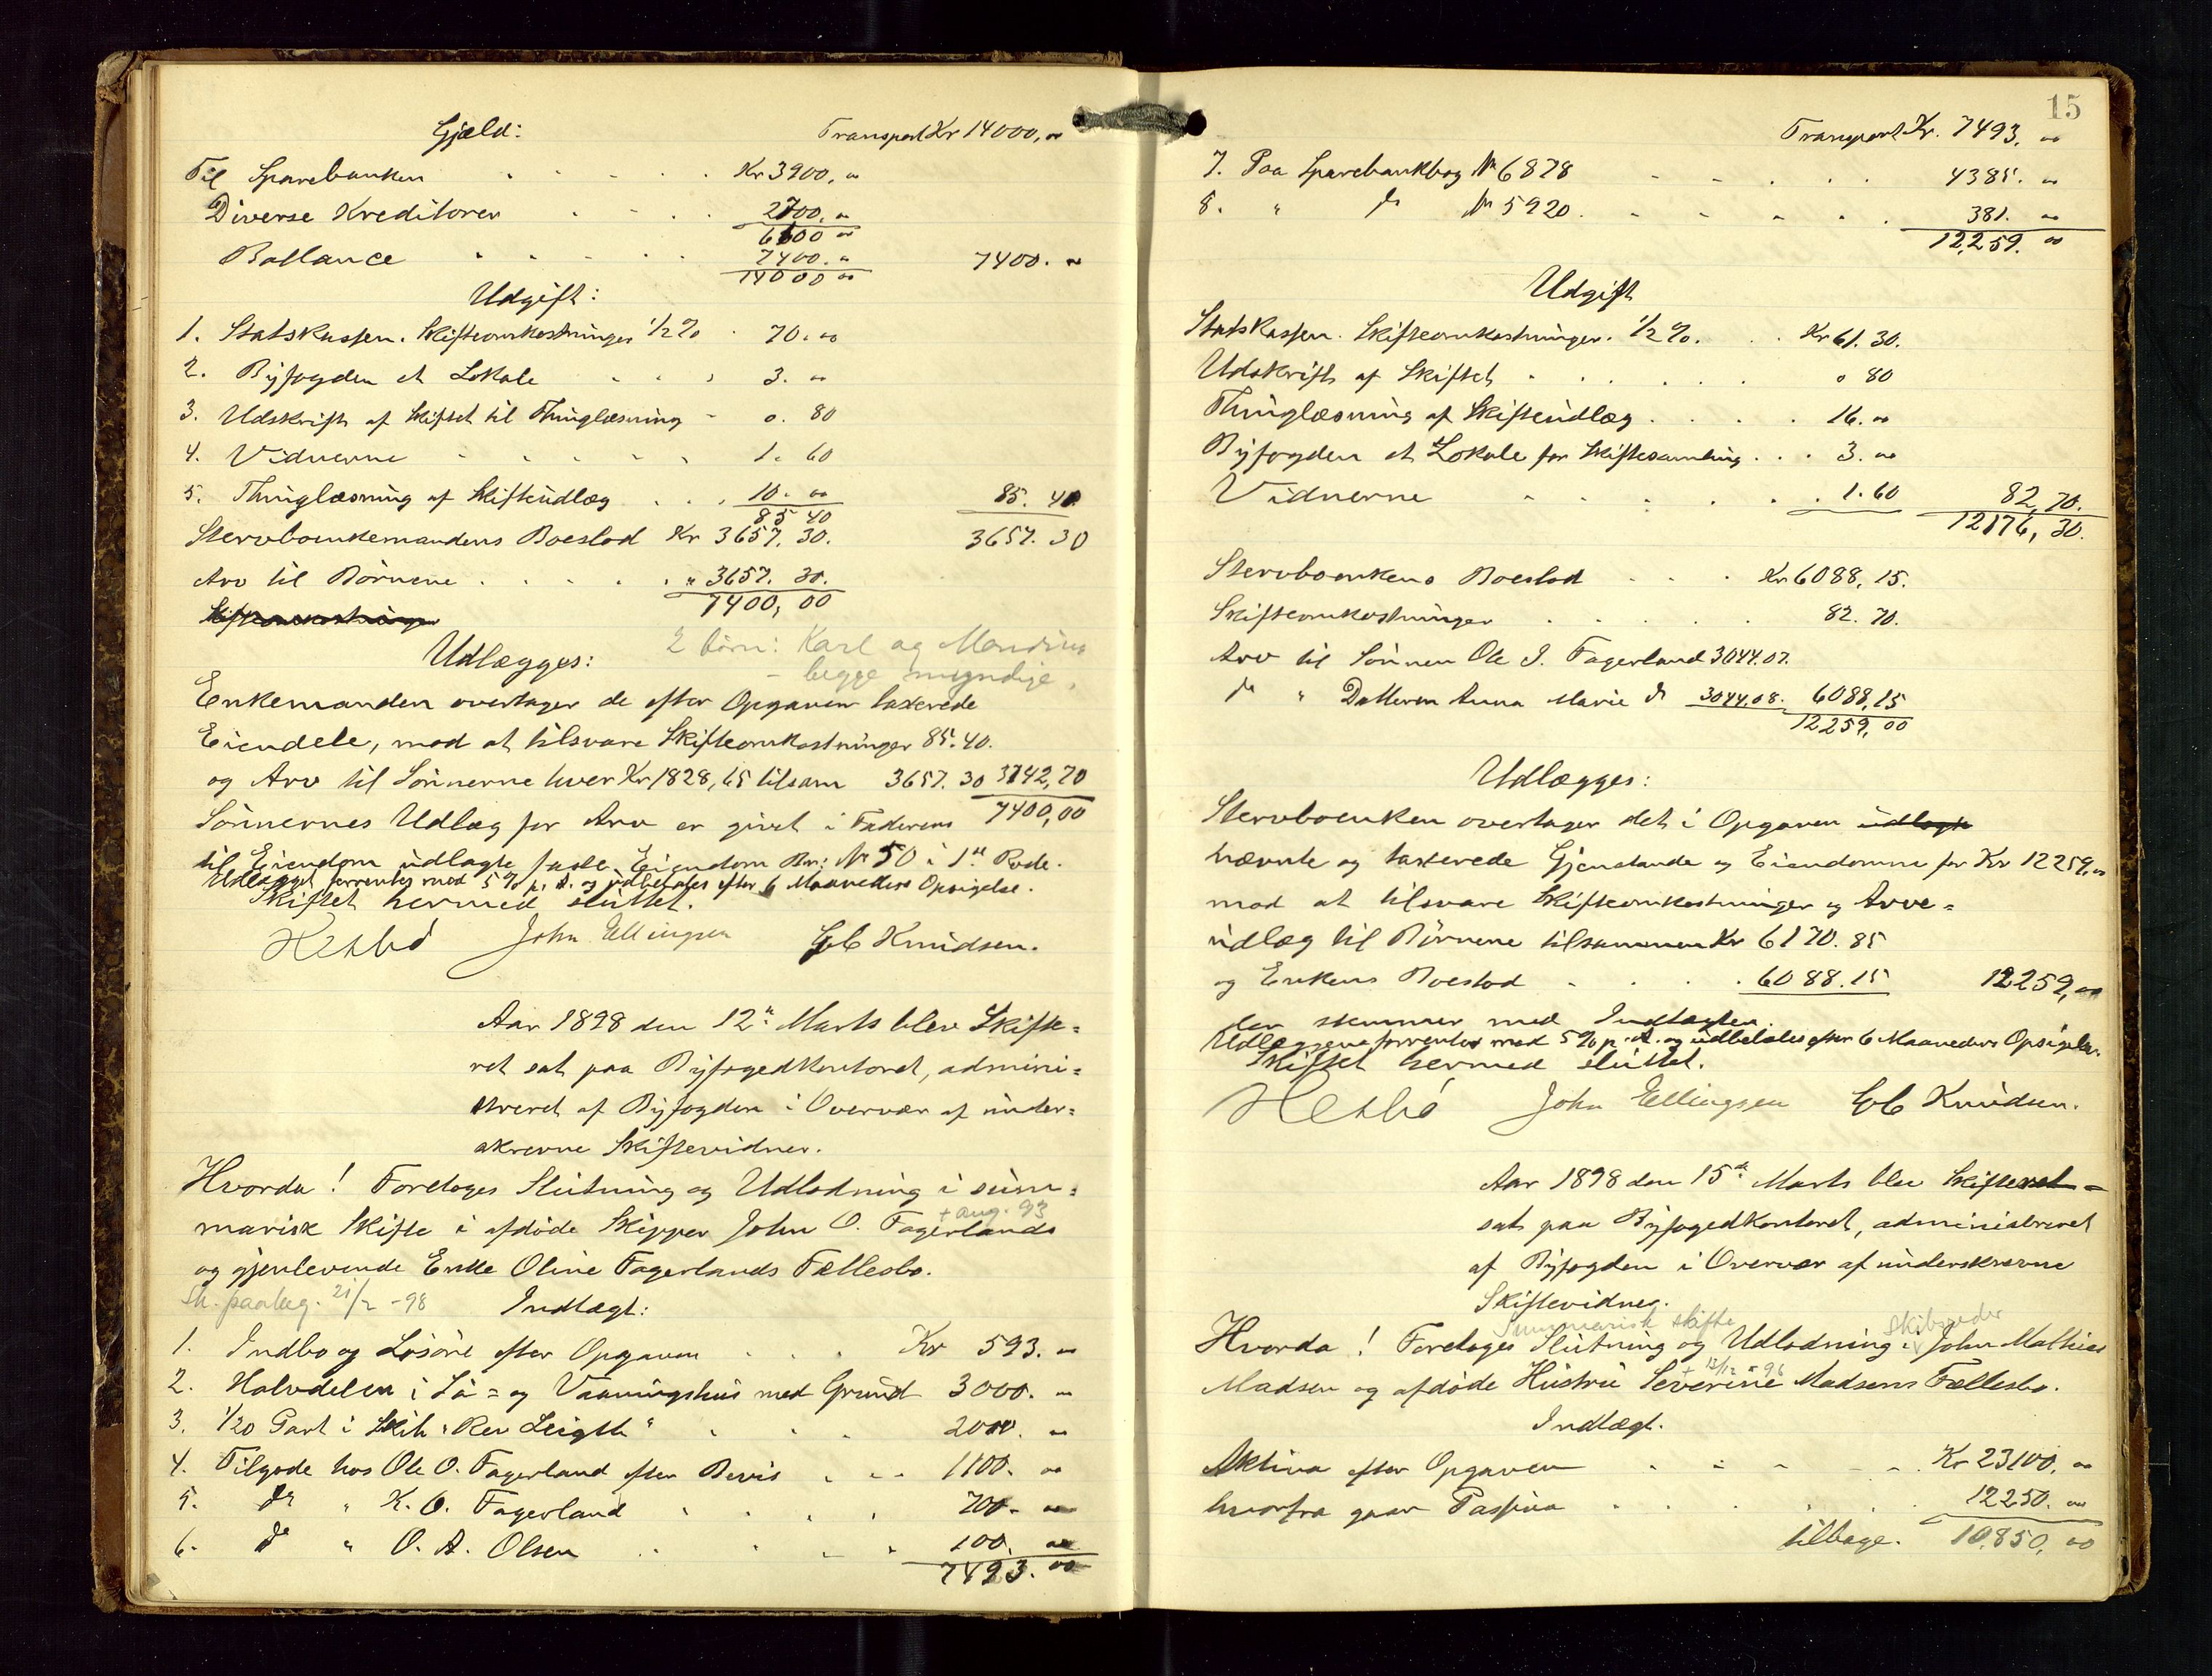 Gjæld: Transport Kr 14000, 00
Til Sparebanken Kr 3900, 00
Diverse Kreditorer 2700, 00
6600 00
Ballance 7400. 00 7400. 00
14000 00
Udgift:
1. Statskassen. Skifteomkostninger 1/2 % 70. 00
2. Byfogden et Lokale 3. 00
3. Udskrift af Skiftet til Thinglæsning 0. 80
4. Vidnerne 1. 60
5. Thinglæsning af Skifteudlæg 10. 00 85. 40
85 40
Stervboenkemandens Boeslod Kr 3657. 30. 3657. 30
Arv til Børnene " 3657. 30.
7400, 00
Skifteomkostninger
Udlægges: 2 børn: Karl og
- begge myndige.
Enkemanden overtager de efter Opgaven taxerede
Eiendele, mod at tilsvare Skifteomkostninger 85.40.
og Arv til Sønnerne hver Kr 1828,65 tilsam 3657. 30 3742,70
7400,00
Sønnernes Udlæg for Arv er givet i Faderens
til Eiendom udlagte faste Eiendom Br: № 50 i 1ste Rode.
Udlægget forrentes med 5 % p. A. og udbetales efter 6 Maaneders Opsigelse.
Skiftet hermed sluttet.
John Ellingsen Knudsen.
Aar 1898 den 12te Marts blev Skifte=
ret sat paa Byfogedkontoret, admini=
streret af Byfogden i Overvær af under=
skrevne Skiftevidner.
Hvorda! Foretages Slutning og Udlodning i sum=
+ aug. 93
marisk Skifte i afdøde Skipper John O. Fagerlands
og gjenlevende Enke Oline Fagerlands Fællesbo.
Sk. paabeg. 21/2 -98 Indtægt:
1. Indbo og Løsøre efter Opgaven Kr 593. 00
2. Halvdelen i Sø= og Vaaningshus med Grund 3000. 00
3. 1/20 Part i Skib "Rev Leigth" 2000. 00
4. Tilgode hos Ole O. Fagerland efter Bevis 1100. 00
5. do " K. O. Fagerland 200. 00
6. do " O. A. Olsen 100. 00
7493. 00
15
Transport Kr. 7493. 00
7. Paa Sparebankbog № 6878 4385. 00
8. " do № 5920. 381. 00
12,259. 00
Udgift
Statskassen. Skifteomkostninger. 1/2 %. Kr 61. 30.
Udskrift af Skiftet 0 80
Thinglæsning af Skifteudlæg 16. 00
Byfogden et Lokale for Skiftesamling 3. 00
Vidnerne 1. 60 82,70.
12176, 30.
Stervboenkens Boeslod Kr 6088, 15.
Skifteomkostninger 82. 70.
Arv til Sønnen Ole J. Fagerland 3044.07.
do " Datteren Anna Marie do 3044,08. 6088,15
12259,00
Udlægges:
Stervboenken overtager det i Opgaven udlagte
nævnte og taxerede Gjenstande og Eiendomme for Kr 12259,00
mod at tilsvare Skifteomkostninger og Arve=
udlæg til Børnene tilsammen Kr 6170. 85
og Enkens Boeslod 6088.15 12259,00
der stemmer med Indtægten.
Udlæggene forrentes med 5 % p. A. og udbetales efter 6 Maaneders Opsigelse.
Skiftet hermed sluttet.
John Ellingsen Knudsen.
Aar 1898 den 15de Marts blev Skifteret
sat paa Byfogedkontoret, administreret
af Byfogden i Overvær af underskrevne
Skiftevidner.
Summarisk skifte skibsreder
Hvorda! Foretages Slutning og Udlodning i John Mathias
+ 12/12 -96
Madsen og afdøde Hustru Severine Madsens Fællesbo.
Indtægt.
Aktiva efter Opgaven Kr 23100. 00
hvorfra gaar Passiva 12250. 00
tilbage. 10,850, 00